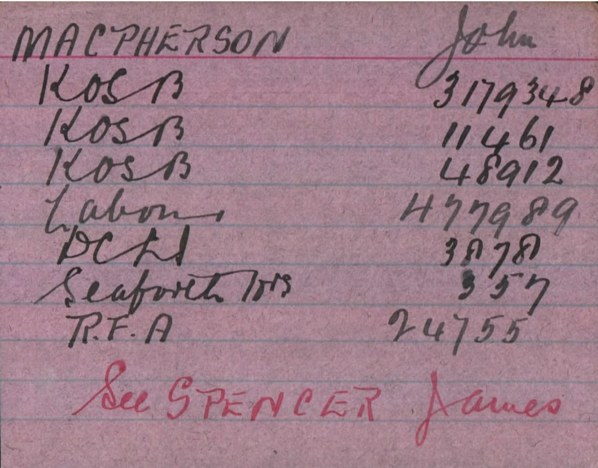 MACPHERSON John
KOSB 3179348
KOSB 11461
KOSB 48912
Labour 477989
DCLI 3878
Seaforth 357
R.F.A 24755
See SPENCER James